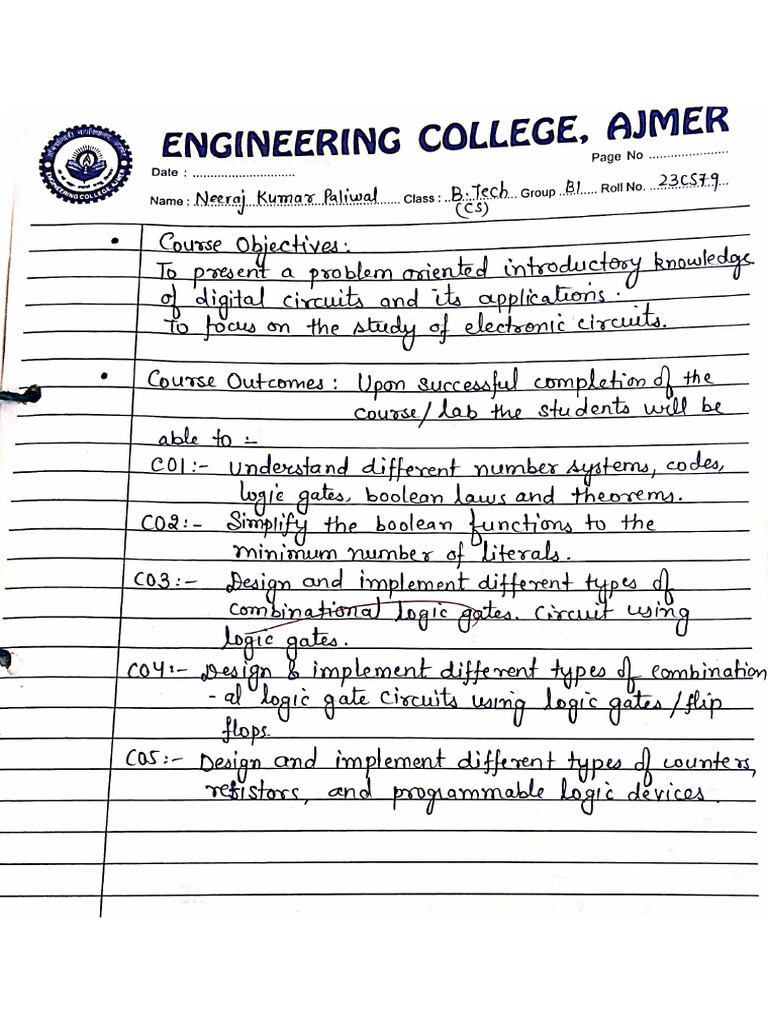 ENGINEERING COLLEGE, AJMER
Page No ......................
Date : .............................
Name : Neeraj Kumar Paliwal Class : B.Tech (CS) Group B1 Roll No. 23CS79
ENGINEERING COLLEGE, AJMER
• Course Objectives:
To present a problem oriented introductory knowledge
of digital circuits and its applications.
To focus on the study of electronic circuits.
• Course Outcomes: Upon successful completion of the
course/lab the students will be
able to :-
CO1:- Understand different number systems, codes,
logic gates, boolean laws and theorems.
CO2:- Simplify the boolean functions to the
minimum number of literals.
CO3:- Design and implement different types of
combinational logic gates. Circuit using
logic gates.
CO4:- Design & implement different types of combination
-al logic gate circuits using logic gates/flip
flops.
CO5:- Design and implement different types of counters,
and programmable logic devices.